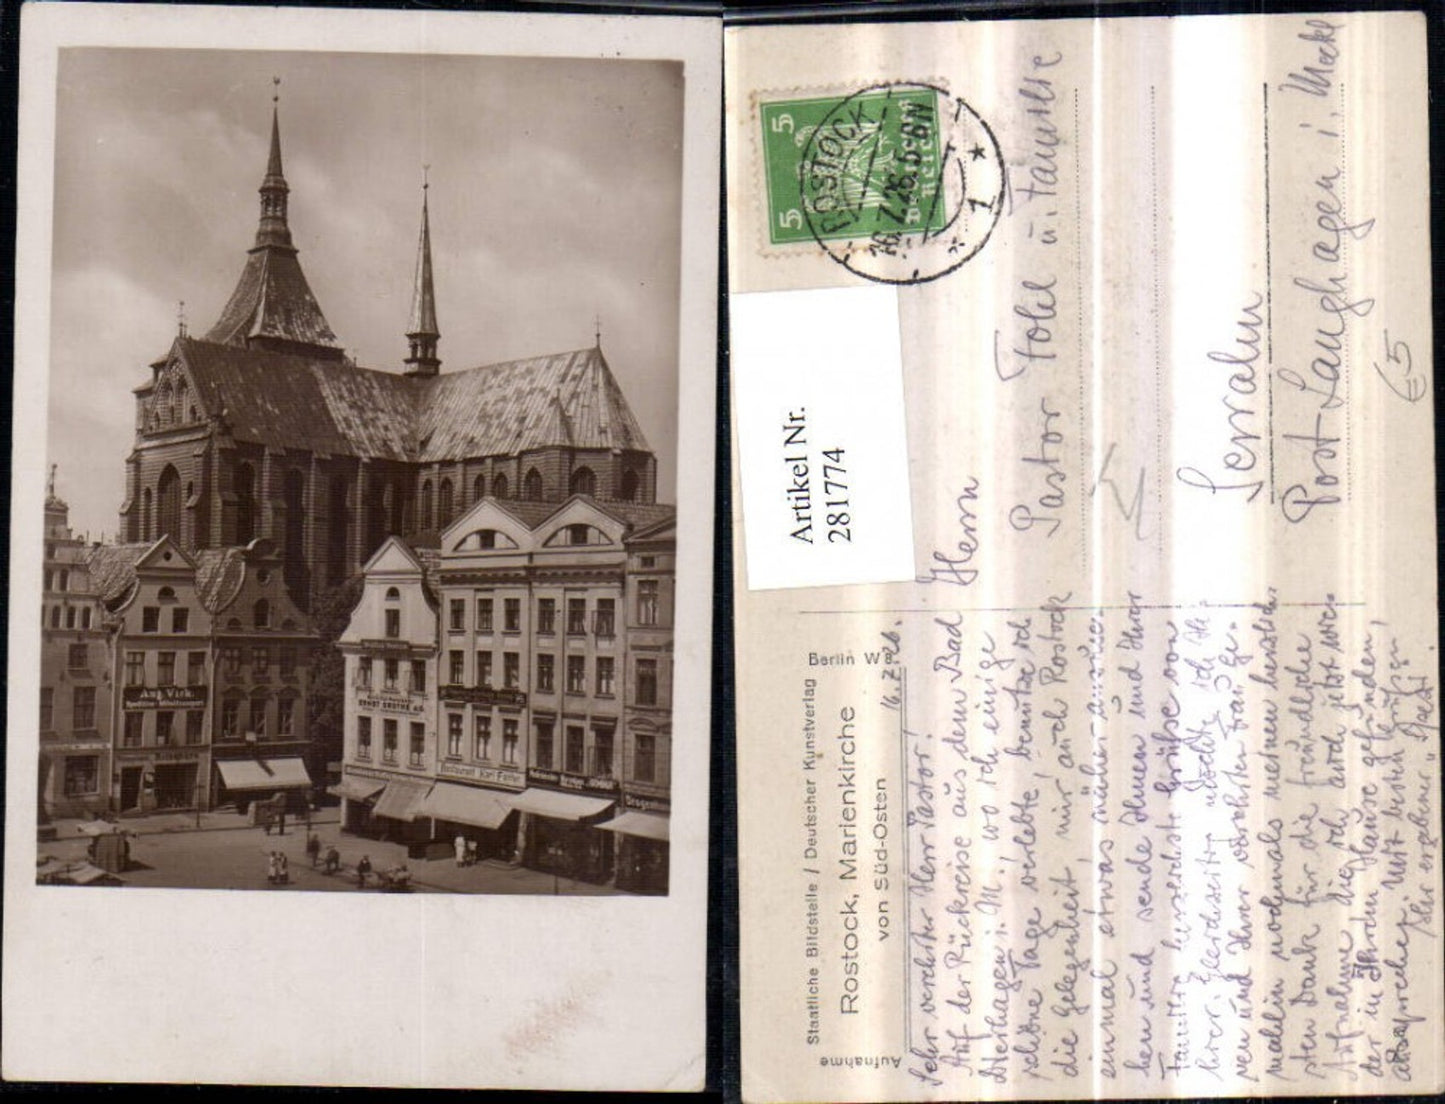 Aug. Virk.
ERNST GRUTHE A.G.
Restaurant Karl
Drogen
5 5
ROSTOCK
16.7.26. 5-6N
* 1 *
Artikel Nr.
281774
Aufnahme
Staatliche Bildstelle / Deutscher Kunstverlag Berlin W 8.
Rostock, Marienkirche
von Süd-Osten
16.7.26.
Sehr verehrter Herr Pastor!
Auf der Rückreise aus dem Bad
Dierhagen i. M., wo ich einige
schöne Tage verlebte, benutze ich
die Gelegenheit mir auch Rostock
einmal etwas näher anzuse-
hen und sende Ihnen und Ihrer
Familie herzlichste Grüsse von
hier. Gleichzeitig möchte ich Ih-
nen und Ihrer verehrten Frau Ge-
mahlin nochmals meinen herzlich-
sten Dank für die freundliche
Aufnahme die ich auch jetzt wie-
der in Ihrem Hause gefunden,
aussprechen. Mit besten Grüßen
Ihr ergebener
Herrn
Pastor u. Familie
Serrahn
Post Langhagen i. Meckl
€5